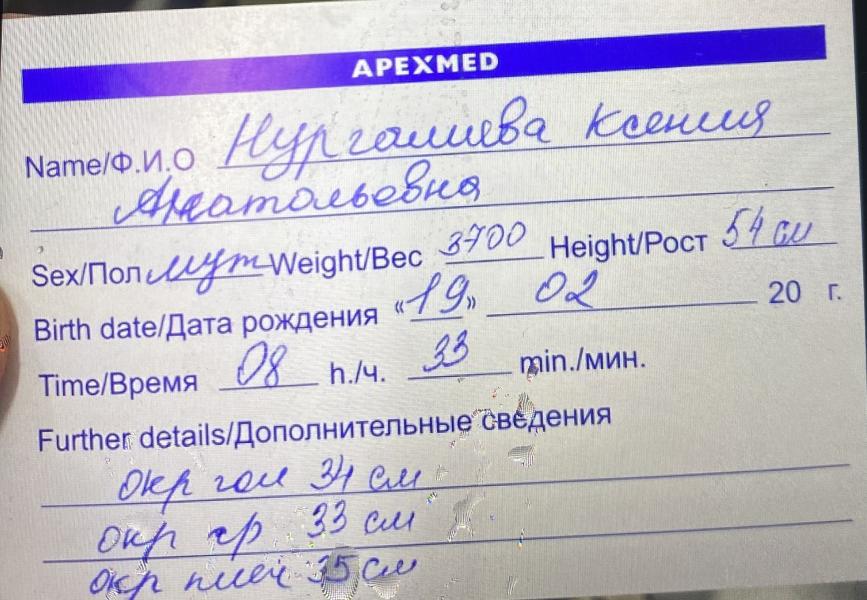 APEXMED
Name/Ф.И.О Нургалиева Ксения
Анатольевна
Sex/Пол муж Weight/Вес 3700 Height/Рост 54 см
Birth date/Дата рождения «19» 02 20 г.
Time/Время 08 h./ч. 33 min./мин.
Further details/Дополнительные сведения
окр гол 34 см
окр гр 33 см
окр плеч 35 см